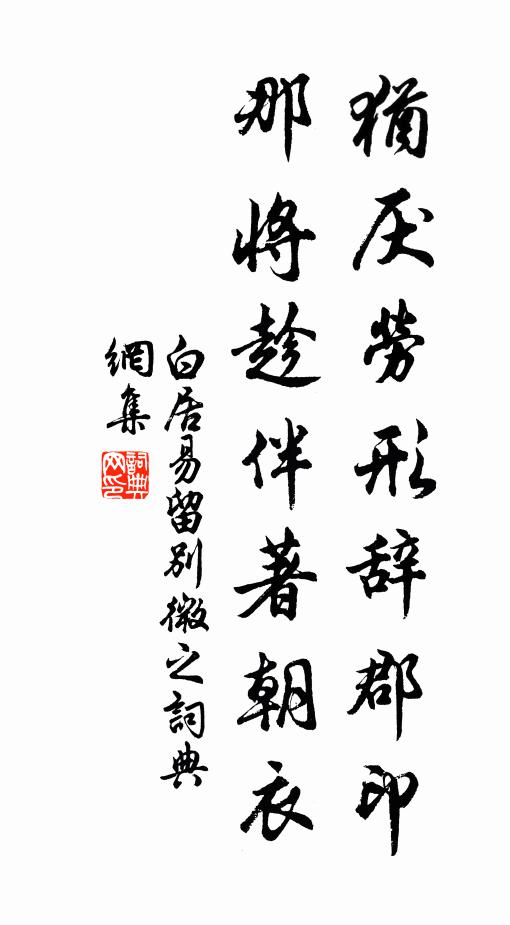 猶厌勞形辞郡印
那将趁伴著朝衣
白居易留别微之詞典
網集
詞典網印